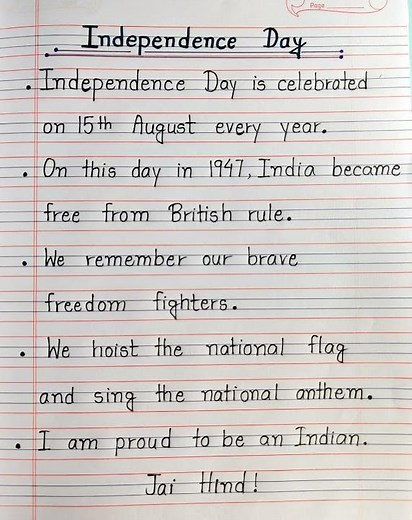 Page
Independence Day
. Independence Day is celebrated
on 15th August every year.
. On this day in 1947, India became
free from British rule.
. We remember our brave
freedom fighters.
. We hoist the national flag
and sing the national anthem.
. I am proud to be an Indian.
Jai Hind!